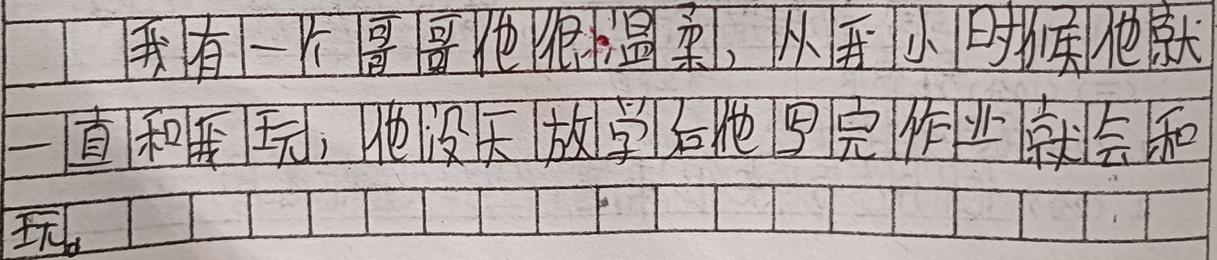 我有一个哥哥他很温柔，从我小时候他就
一直和我玩，他没天放学后他写完作业就会和
玩。